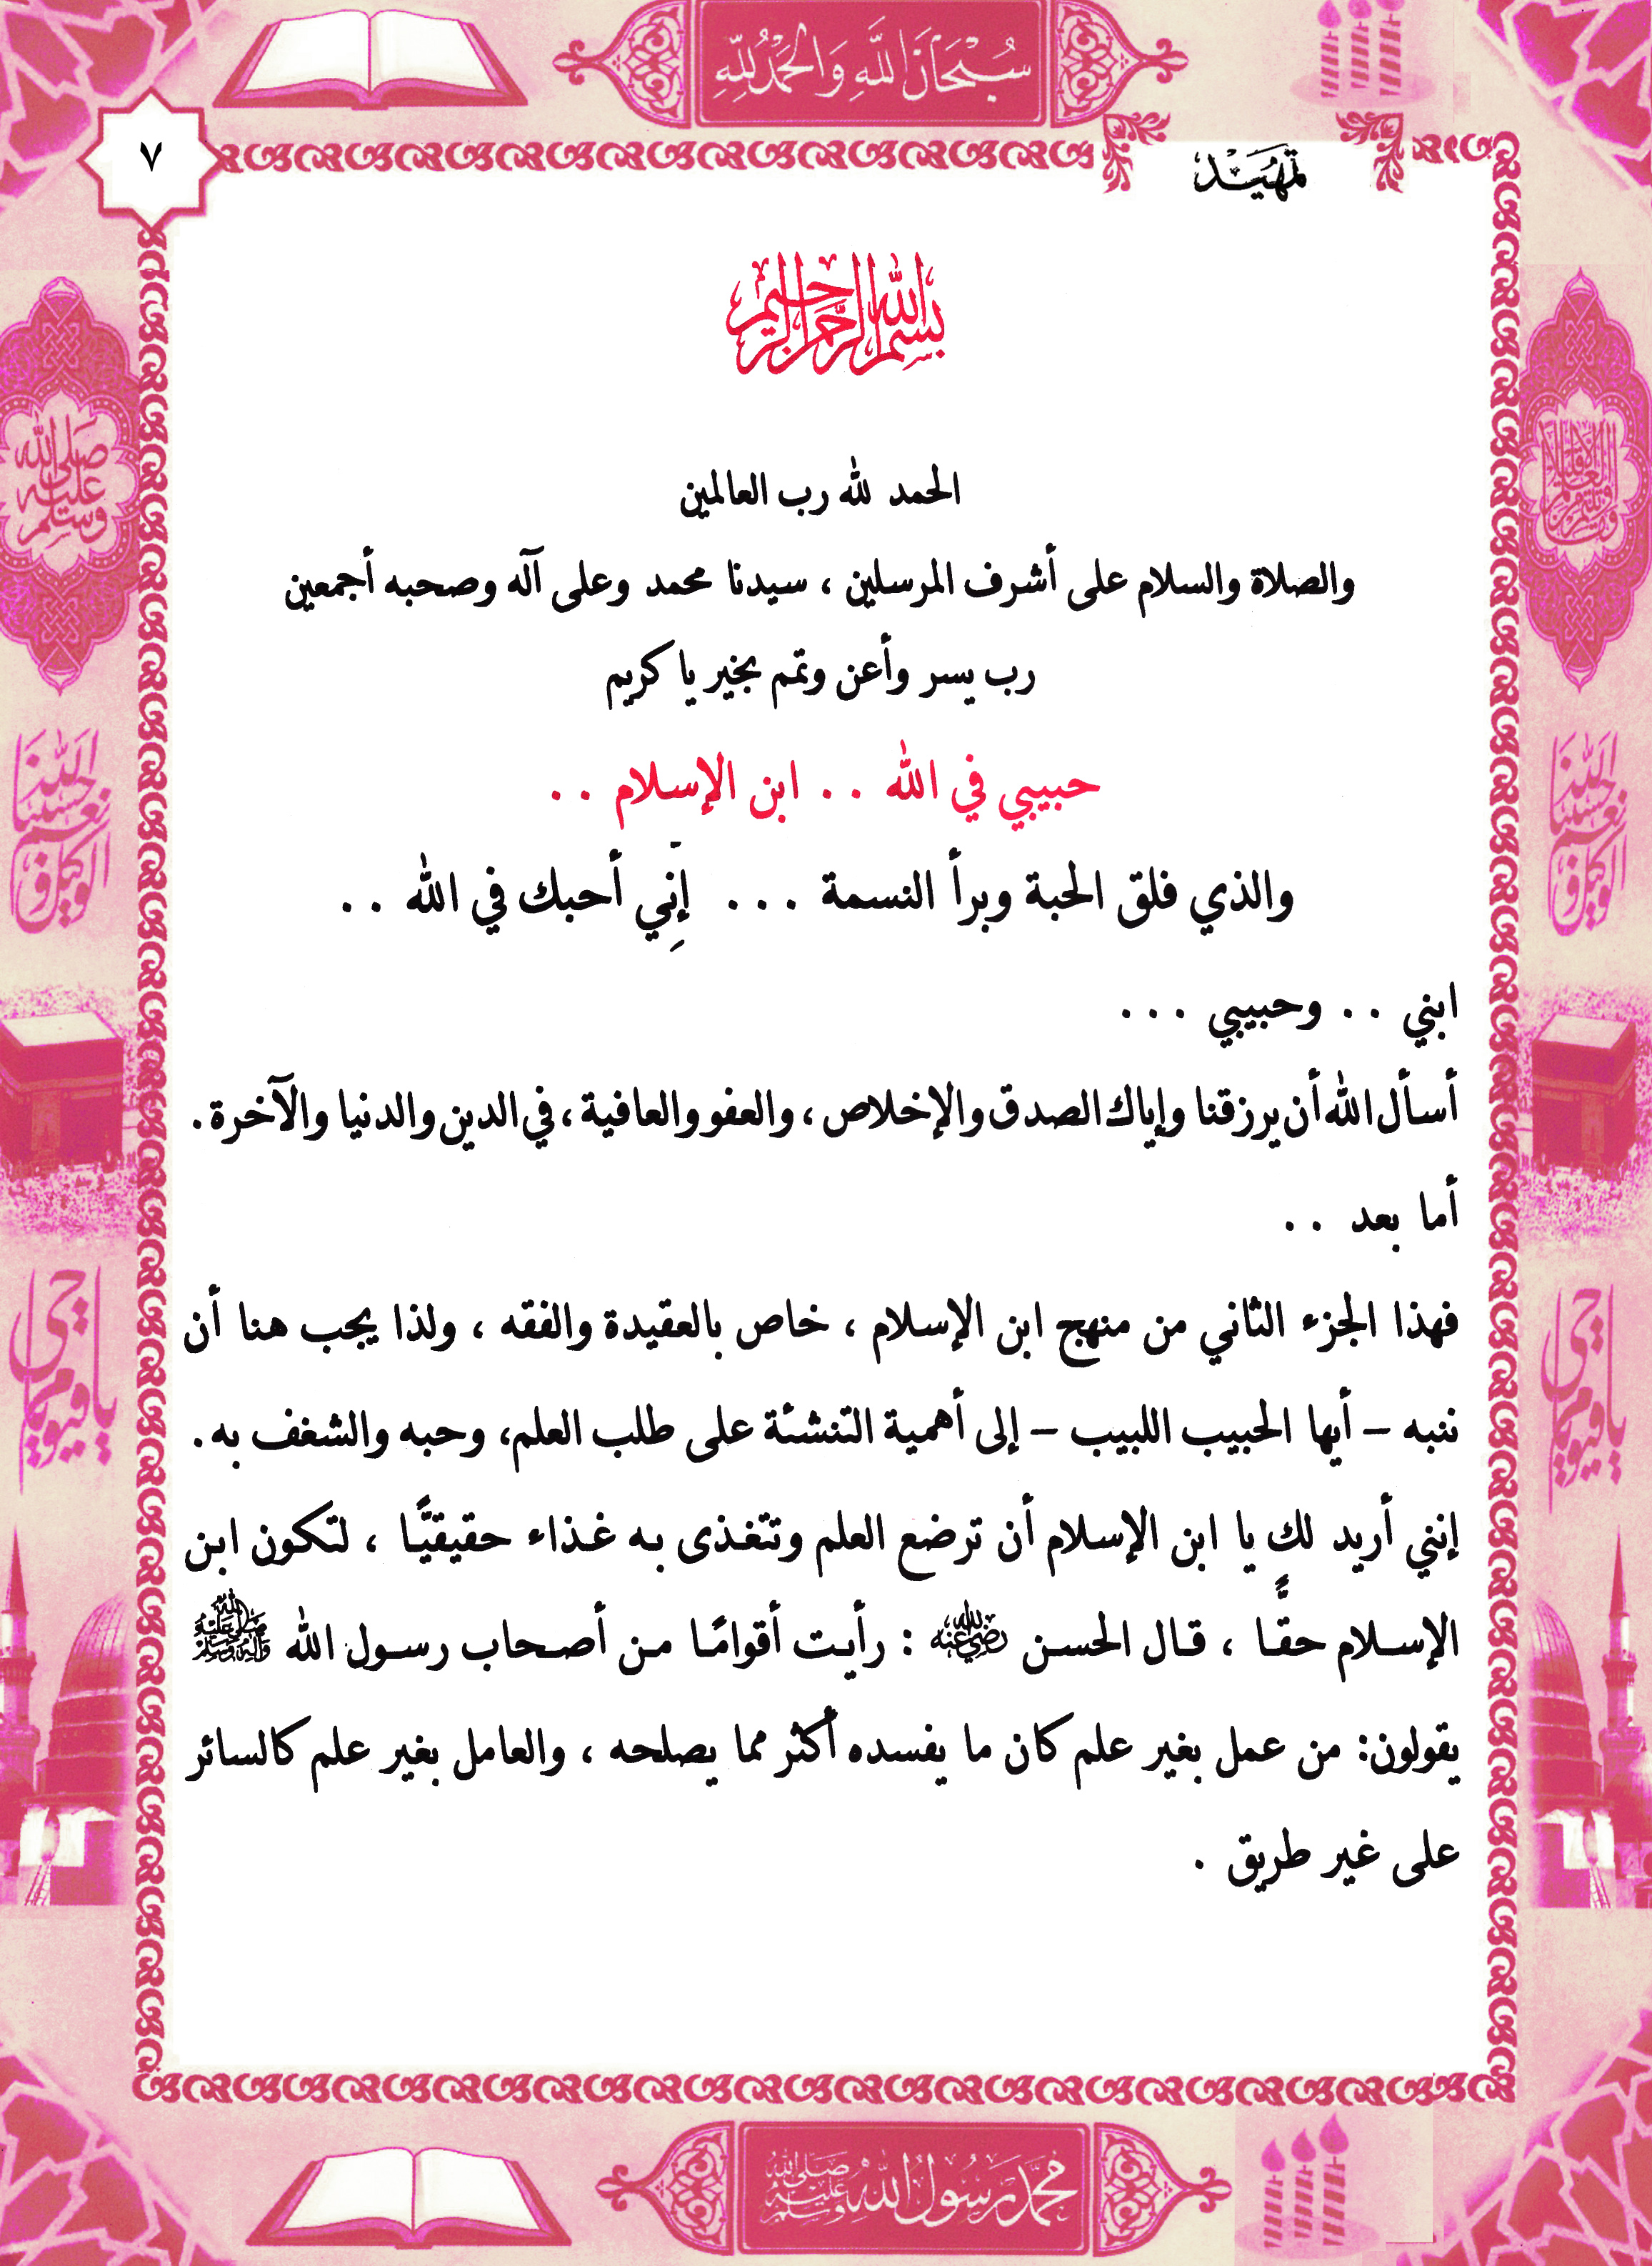 سُبْحَانَ اللَّهِ وَالْحَمْدُ لِلَّهِ
٧
تَمْهِيد
بسم الله الرحمن الرحيم
الحمد لله رب العالمين
والصلاة والسلام على أشرف المرسلين ، سيدنا محمد وعلى آله وصحبه أجمعين
رب يسر وأعن وتمم بخير يا كريم
حبيبي في الله . . ابن الإسلام . .
والذي فلق الحبة وبرأ النسمة . . . إنِّي أحبك في الله . .
ابني . . وحبيبي . . .
أسأل الله أن يرزقنا وإياك الصدق والإخلاص ، والعفو والعافية ، في الدين والدنيا والآخرة .
أما بعد . .
فهذا الجزء الثاني من منهج ابن الإسلام ، خاص بالعقيدة والفقه ، ولذا يجب هنا أن
ننبه – أيها الحبيب اللبيب – إلى أهمية التنشئة على طلب العلم، وحبه والشغف به .
إنني أريد لك يا ابن الإسلام أن ترضع العلم وتتغذى به غذاء حقيقيًّا ، لتكون ابن
الإسلام حقًّا ، قال الحسن رضي الله عنه : رأيت أقوامًا من أصحاب رسول الله ﷺ
يقولون: من عمل بغير علم كان ما يفسده أكثر مما يصلحه ، والعامل بغير علم كالسائر
على غير طريق .
صلى الله عليه وسلم
حسبنا الله ونعم الوكيل
حسبنا الله ونعم الوكيل
يا حي يا قيوم
يا حي يا قيوم
محمد رسول الله صلى الله عليه وسلم